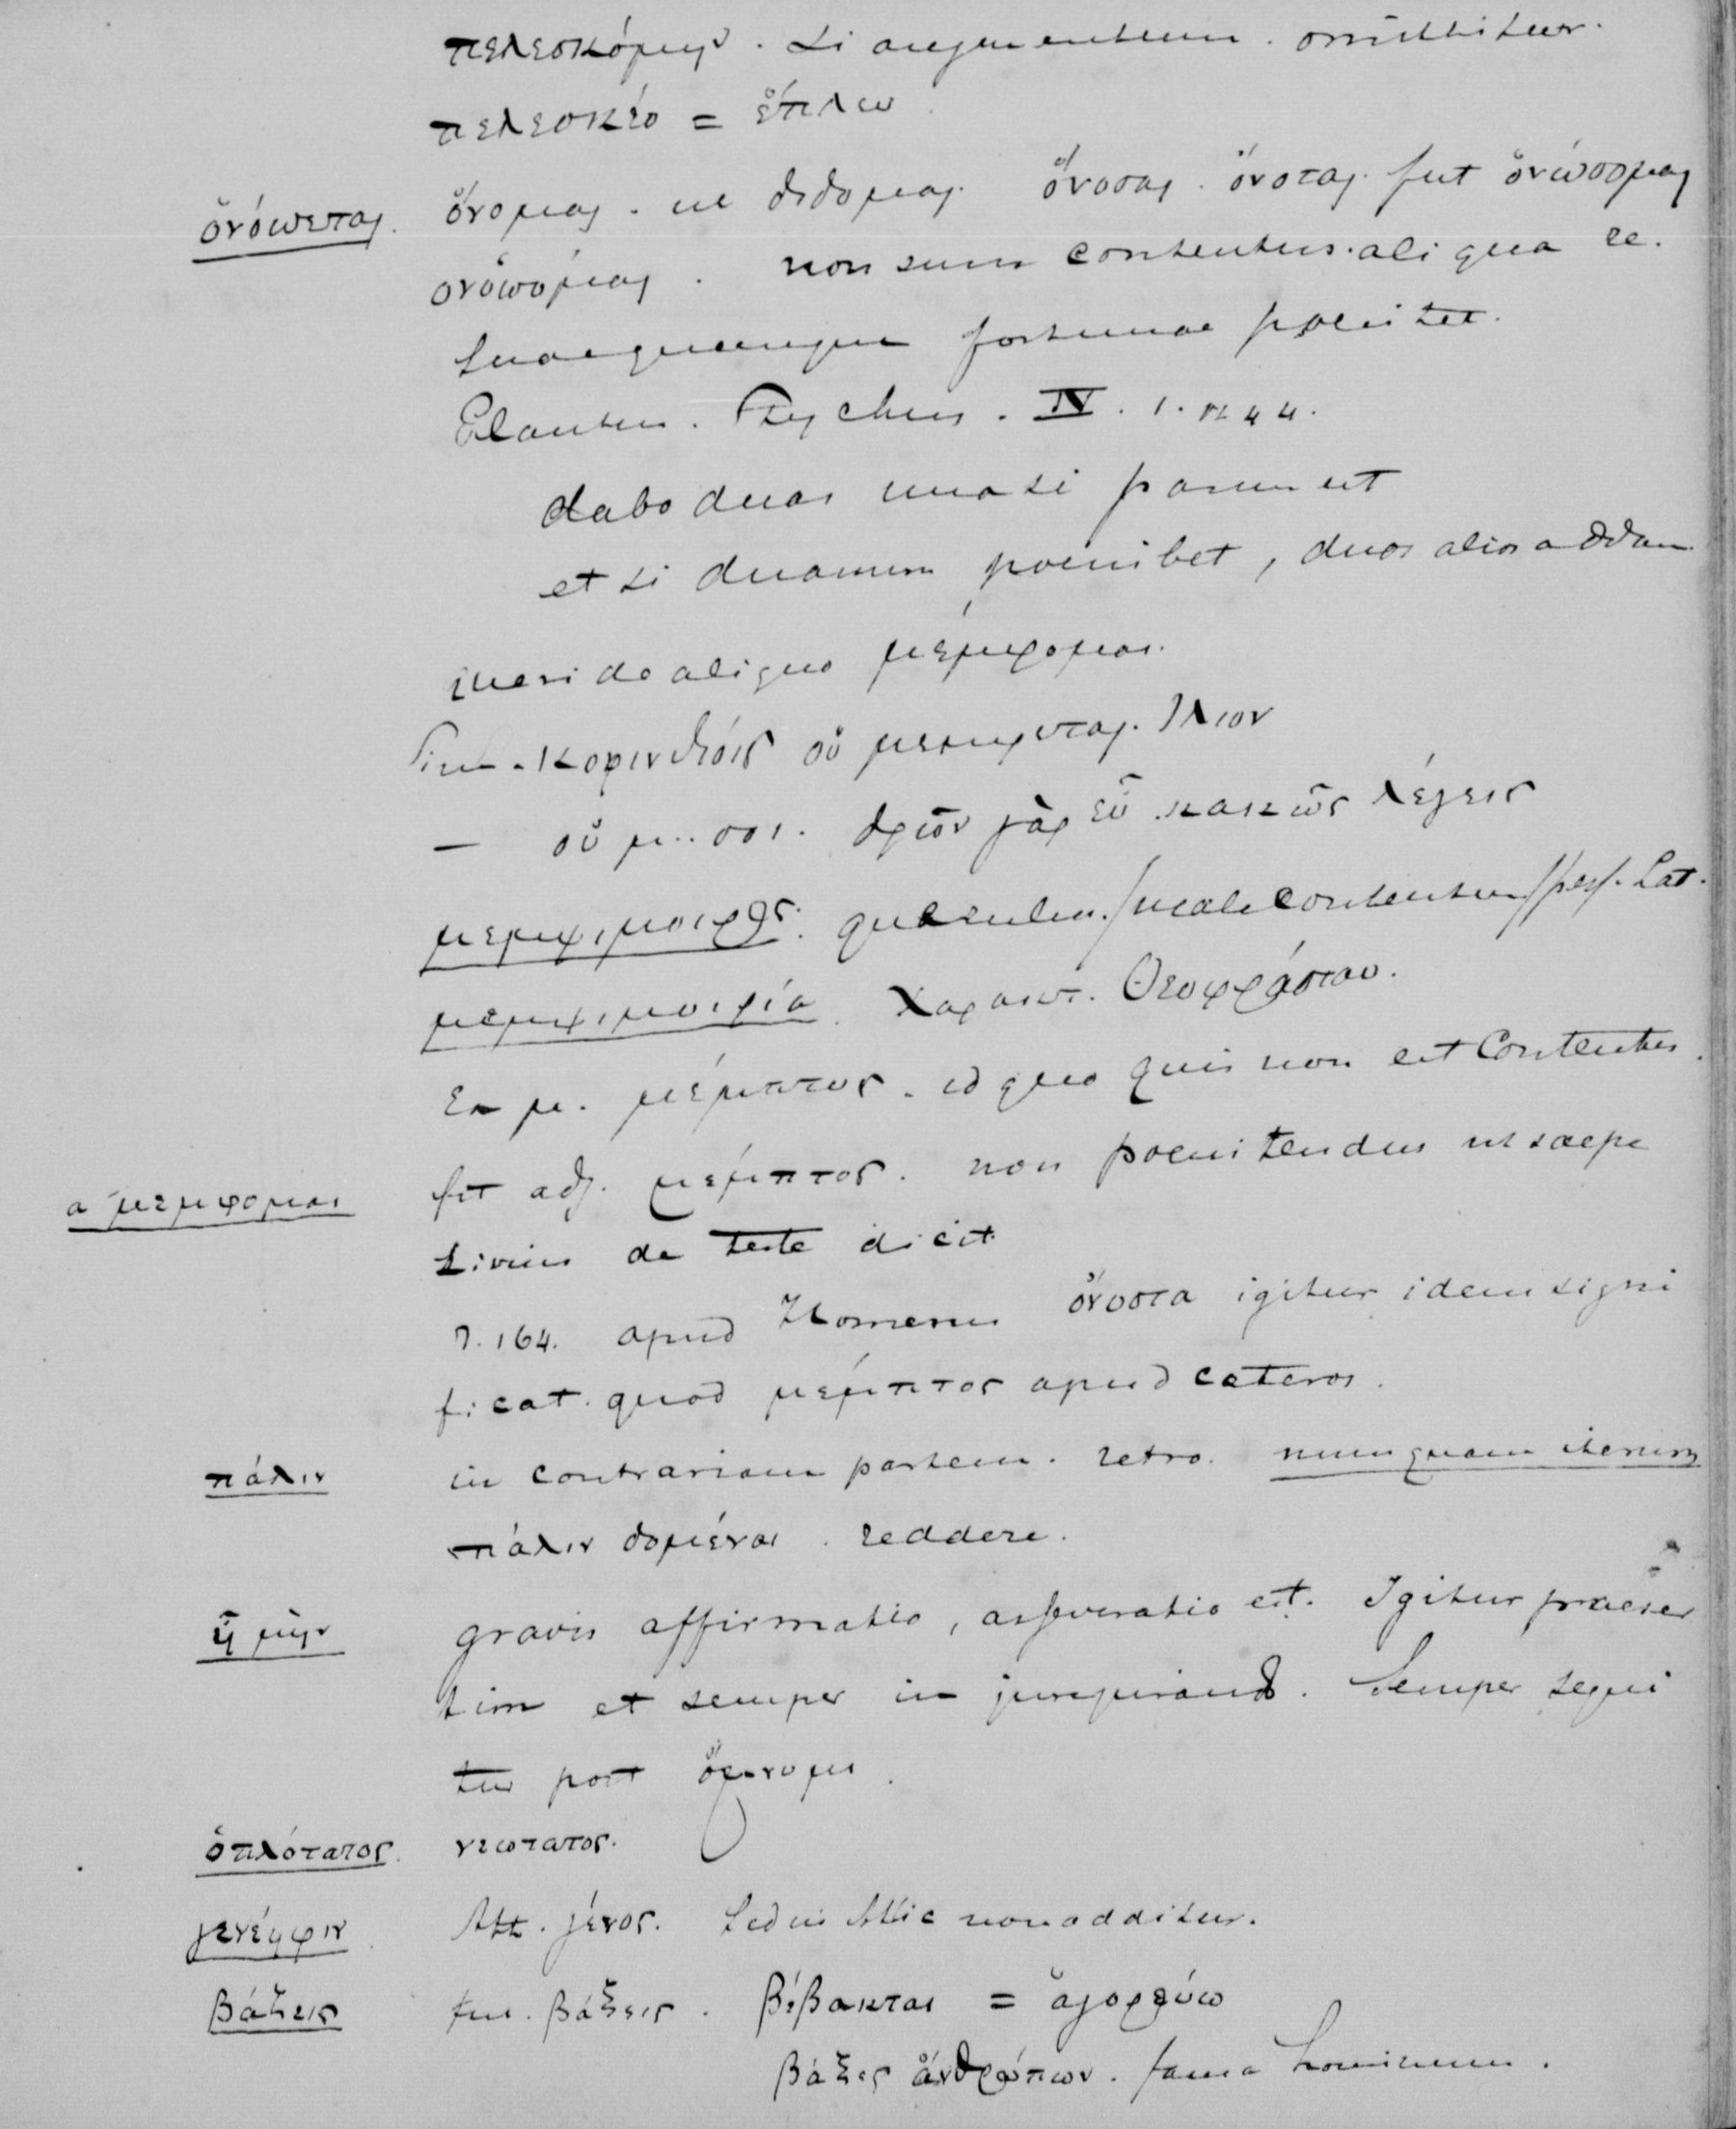 πελεσκόμην. Si augmentum omittitur.
πελεσκέο = ἔπλεω
ὀνόσσεται. ὄνομαι. ut δίδομαι. ὄνοσαι. ὄνοται. fut ὀνώσομαι
ὀνόσομαι. non sum contentus aliqua re.
Suaequemque fortunae poenitet.
Plautus. Stychus. IV. 1. 44.
dabo duas una si parum est
et si duarum poenibet, duas alias addam
queri de aliquo μέμφομαι.
Sim. Κορινθίοις οὐ μεμφεται. Ἴλιον
— οὐ μ.. σοι. δρῶν γὰρ εὖ κακῶς λέγεις
μεμψιμοιρος. querulus. male contentus
μεμψιμοιρία. Χαρακτ. Θεοφράστου.
Ex μ. μέμπτος. id quo quis non est contentus.
a μεμφομαι fit adj. μέμπτος. non poenitendus ut saepe
Livius de teste dicit
I. 164. apud Homerum ὄνοστα igitur idem signi
ficat quod μέμπτος apud ceteros.
πάλιν in contrariam partem. retro. nunquam iterum
πάλιν δομέναι. reddere.
ἦ μὴν gravis affirmatio, asseveratio est. Igitur praeser
tim et semper in jurejurando. Semper sequi
tur post ὄμνυμι.
ὁπλότατος. νεωτατος.
γενέηφιν Att. γένος. Sed in Attic non additur.
βάζεις fut. βάξεις. βέβακται = ἀγορεύω
βάξις ἀνθρώπων. fama hominum.